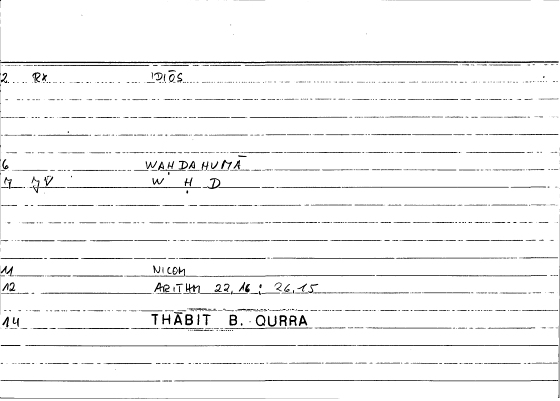 2 RX IDIŌS
6 WAḤDAHUMĀ
7 W Ḥ D
11 NICOM
12 ARITHM 22,16; 26,15
14 THĀBIT B. QURRA